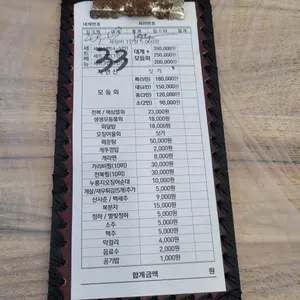 테이블번호
33
대게 + 모듬회
350,000원
250,000원
200,000원
모듬회
싯가
특(5인) 180,000원
대(4인) 150,000원
중(3인) 120,000원
소(2인) 90,000원
전복 / 해삼물회 23,000원
생생모듬물회 18,000원
회덮밥 18,000원
오징어물회 싯가
매운탕 50,000원
게주껑밥 2,000원
게라면 8,000원
가리비찜(10미) 30,000원
전복찜(10미) 30,000원
누룽지오징어순대 10,000원
게살/새우튀김(5개)추가 5,000원
산사춘 / 백세주 9,000원
복분자 15,000원
청하 / 별빛청하 5,000원
소주 5,000원
맥주 5,000원
막걸리 4,000원
음료수 2,000원
공기밥 1,000원
합계금액 원